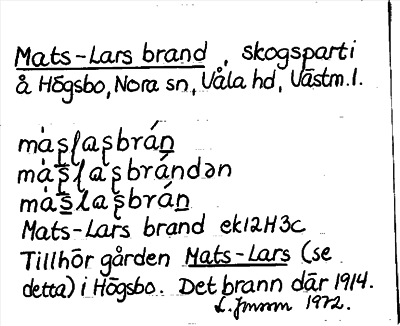 Mats-Lars brand, skogsparti
å Högsbo, Nora sn, Våla hd, Västm.l.
mȧʂɭaʂbrán̲
mȧʂɭaʂbrándən
mȧʂɭaʂbrán̲
Mats-Lars brand ek12H3c
Tillhör gården Mats-Lars (se
detta) i Högsbo. Det brann där 1914.
1972.